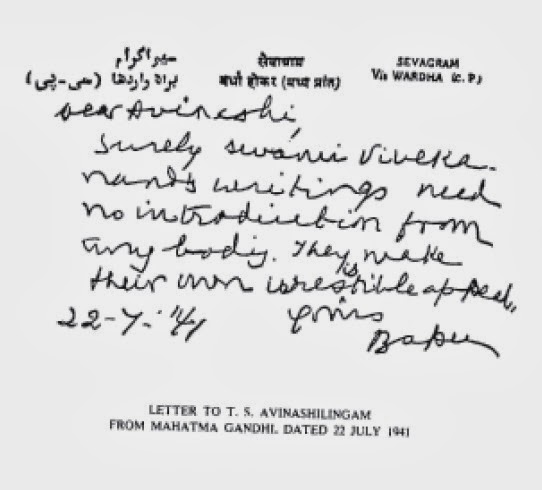 سیواگرام
براہ واردھا (سی-پی)
सेवाग्राम
वर्धा होकर (मध्य प्रांत)
SEVAGRAM
Via WARDHA (C. P.)
Dear Avinashi,
Surely Swami Viveka-
nand's writings need
no introduction from
anybody. They make
their own irresistible appeal.
22-7-'41 Yours
Bapu
LETTER TO T. S. AVINASHILINGAM
FROM MAHATMA GANDHI. DATED 22 JULY 1941